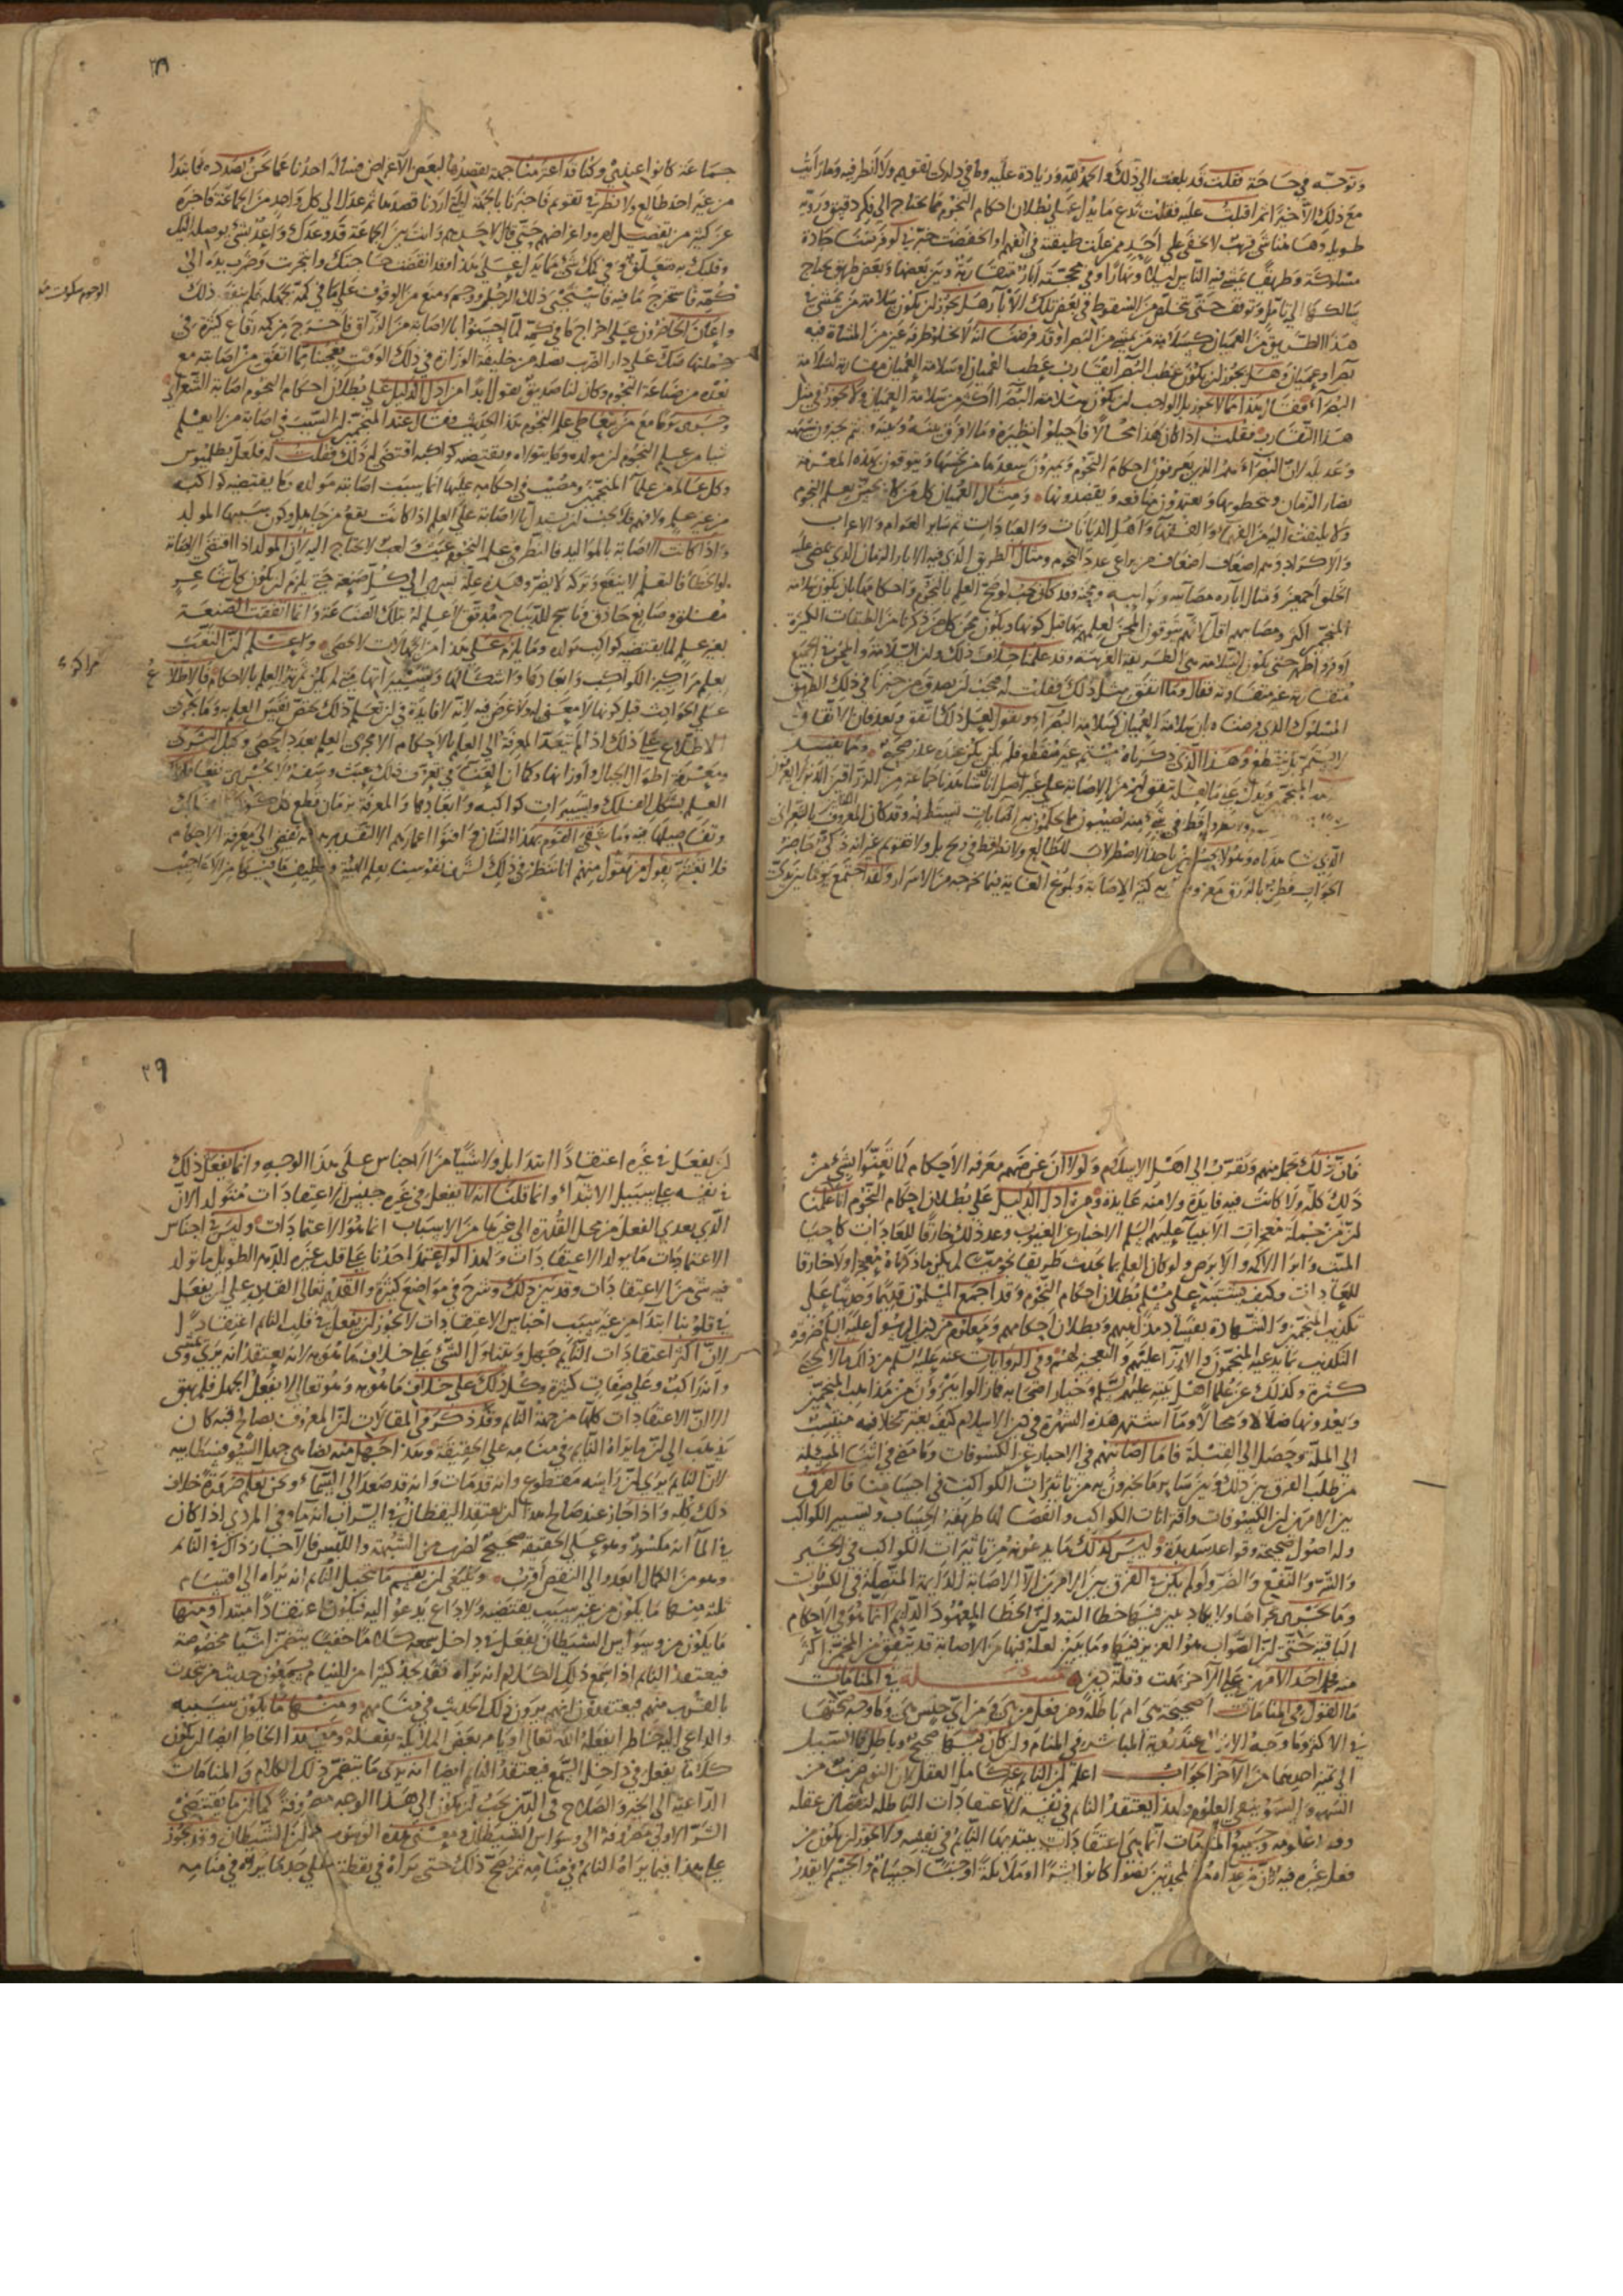 وتوجه في حاجة فقلت قد بلغت الى ذلك والحمد لله وزيادة عليه وما في داري تقويم ولا انظر فيه وما رأيت
مع ذلك الا خيرا ثم اقبلت عليه فقلت ندع ما يدل على بطلان احكام النجوم مما يحتاج الى فكر دقيق وروية
طويلة وهاهنا شي قريب لا يخفى على احد ممن علت طبقته في الفهم او انخفضت خبرني لو فرضنا جادة
مسلوكة وطريقا يمشي فيه الناس ليلا ونهارا وفي محجته آبار متقاربة وبين بعضها وبعض طريق يحتاج
سالكه الى تأمل وتوقف حتى يتخلص من السقوط في بعض تلك الآبار هل يجوز ان يكون سلامة من يمشي في
هذا الطريق من العميان كسلامة من يمشي من البصراء وقد فرضنا انه لا يخلو طرفة عين من المشاة فيه
بصراء وعميان وهل يجوز ان يكون عطب البصراء يقارب عطب العميان او سلامة العميان مقاربة لسلامة
البصراء فقال هذا مما لا يجوز بل الواجب ان يكون سلامة البصراء اكثر من سلامة العميان ولا يجوز في مثل
هذا التقارب فقلت اذا كان هذا محالا فاحيلوا نظيره وما لا فرق بينه وبينه وانتم تجيزون شبيه
وعديله لان البصراء هم الذين يعرفون احكام النجوم ويميزون سعدها من نحسها ويتوقون بهذه المعرفة
مضار الزمان ويتخطونها ويعتمدون منافعه ويقصدونها ومثال العميان كل من كان لا يحسن تعلم النجوم
ولا يلتفت اليه من الفهماء والفقهاء واهل الديانات والعبادات ثم سائر العوام والاعراب
والاكراد وهم اضعاف اضعاف من يراعي عدد النجوم ومثال الطريق الذي فيه الابار الزمان الذي يمضي عليه
الخلق اجمعين ومثال اباره مصائبه ونوائبه ومحنه وقد كان يجب لو صح العلم بالنجوم واحكامها ان يكون سلامة
المنجمين اكثر ومصائبهم اقل لانهم يتوقون المحن لعلمهم بها قبل كونها ويكون محن كل من ذكرنا من الطبقات الكثيرة
اوفر واظهر حتى يكون السلامة هي الطريقة الغريبة وقد علمنا خلاف ذلك وان السلامة والمحن في الجميع
متقاربة غير متفاوتة فقال ربما اتفق مثل ذلك فقلت له فيجب ان نصدق من خبرنا في ذلك الطريق
المسلوك الذي فرضناه بان سلامة العميان كسلامة البصراء ونقول لعل ذلك اتفق وبعد فان الاتفاق
لا يستمر بل ينقطع وهذا الذي ذكرناه مستمر غير منقطع فلم يكن عنده عذر صحيح ومما يفسد
الذي شاهدناه وهو لا يحسن ان يأخذ الاصطرلاب للطالع ولا نظر قط في زيج بل ولا تقويم غير انه ذكي حاضر
الجواب فطن بالزرق معروف به كثير الاصابة وبلوغ الغاية فيما يخرجه من الاسرار ولقد اجتمع يوما بين يدي
٣٨
جماعة كانوا عندي وكنا قد اعتزمنا جهة نقصدها لبعض الاغراض فسأله احدنا عما نحن بصدده فابتدا
من غير اخذ طالع ولا نظر في تقويم فاخبرنا بالجهة التي اردنا قصدها ثم عدل الى كل واحد من الجماعة فاخبره
عن كثير من تفصيل امره واغراضه حتى قال لاحدهم وانت من بين الجماعة قد وعدك واعد بشي يوصله اليك
وقلبك به متعلق وفي كمك شي مما يدل على هذا وقد انقضت حاجتك وانتجزت وضرب يده الى
كمه فاستخرج ما فيه فاستحيى ذلك الرجل ووجم ومنع من الوقوف على ما في كمه بجهده فلم ينفعه ذلك
واعان الحاضرون على اخراج ما في كمه لما احسوا بالاصابة من الزراق فاخرج من كمه رقاع كثيرة في
جملتها صك على دار الضرب بصلة من خليفة الوزارة في ذلك الوقت فعجبنا مما اتفق من اصابته مع
بعده من صناعة النجوم وكان لنا صديق يقول ابدا من ادل الدليل على بطلان احكام النجوم اصابة الشعراني
وجرى يوما مع من يتعاطى علم النجوم هذا الحديث فقال عند المنجمين ان السبب في اصابة من لا يعلم
شيا من علم النجوم ان مولده وما يتولاه ويقتضيه كواكبه اقتضى له ذلك فقلت له فلعل بطلميوس
وكل عالم من علماء المنجمين ومصيب في احكامه عليها انما سبب اصابته مولده وما يقتضيه كواكبه
من غير علم ولا فهم فلا يجب ان يستدل بالاصابة على العلم اذا كانت يقع من جاهل ويكون سببها المولد
واذا كانت الاصابة بالمواليد فالنظر في علم النجوم عبث ولعب لا يحتاج اليه لان المولد اذا اقتضى الاصابة
او الخطأ فالتعلم لا ينفع وتركه لا يضر وهذه علة تسري الى كل صنعة حتى يلزم ان يكون كل شاعر
مفلق وصايغ حاذق وناسج للديباج مدقق لا علم له بتلك الصناعة وانما اتفقت الصنعة
بغير علم لما يقتضيه كواكب مولده وما يلزم على هذا من الجهالات لا يحصى واعلم ان التعب
بعلم مراكز الكواكب وابعادها واشكالها وتسييراتها متى لم يكن ثمرته العلم بالاحكام فالاطلاع
على الحوادث قبل كونها لا معنى له ولا غرض فيه لانه لا فايدة في ان تعلم ذلك محض نفس العلم به وما يجري
الاطلاع على ذلك اذا لم يتعد المعرفة الى العلم بالاحكام الا مجرى العلم بعدد الحصى وكيل النوى
ومعرفة اطوال الجبال واوزانها وكما ان العناء في تعرف ذلك عبث وسفه لا يجدي نفعا فكذلك
العلم بشكل الفلك وتسييرات كواكبه وابعادها والمعرفة بزمان قطع كل كوكب للفلك
وتفاصيلها فيه وما شقي القوم بهذا الشان وافنوا اعمارهم الا لتقديرهم انه يفضي الى معرفة الاحكام
فلا تغتر بقول من يقول منهم اننا ننظر في ذلك لشرف نفوسنا بعلم الهيئة ولطيف ما فيها من الاعاجيب
الوجوم سكوت مع
مراكز
فان ذلك تجمل منهم وتقرب الى اهل الاسلام ولولا ان غرضهم معرفة الاحكام لما تعنوا بشي من
ذلك كله ولا كانت فيه فايدة ولا منه عايدة ومن ادل الدليل على بطلان احكام النجوم انا علمنا
ان من جملة معجزات الانبياء عليهم السلم الاخبار عن الغيوب وعد ذلك خارقا للعادات كاحياء
الميت وابراء الاكمه والابرص ولو كان العلم بما يحدث طريقا نجوميا لم يكن ما ذكرناه معجزا ولا خارقا
للعادات وكيف يشتبه على مسلم بطلان احكام النجوم وقد اجمع المسلمون قديما وحديثا على
تكذيب المنجمين والشهادة بفساد مذاهبهم وبطلان احكامهم ومعلوم من دين الرسول عليه السلم ضرورة
التكذيب بما يدعيه المنجمون والازراء عليهم والتعجيز لهم وفي الروايات عنه عليه السلم من ذلك ما لا يحصى
كثرة وكذلك عن علماء اهل بيته عليهم السلم وخيار اصحابه فما زالوا يبرؤن من مذاهب المنجمين
ويعدونها ضلالا ومحالا وما اشتهر هذه الشهرة في دين الاسلام كيف يغتر بخلافه منتسب
الى الملة ومصل الى القبلة فاما اصابتهم في الاخبار عن الكسوفات وما مضى في اثناء المسئلة
من طلب الفرق بين ذلك وبين ساير ما يخبرون به من تاثيرات الكواكب في اجسامنا فالفرق
بين الامرين ان الكسوفات واقترانات الكواكب وانفصالها طريقه الحساب وتسيير الكواكب
وله اصول صحيحة وقواعد سديدة وليس كذلك ما يدعونه من تاثيرات الكواكب في الخير
والشر والنفع والضر ولو لم يكن في الفرق بين الامرين الا الاصابة الدايمة المتصلة في الكسوفات
وما يجري مجراها ولا يكاد يبين فيها خطا البتة وان الخطا المعهود الدايم انما هو في الاحكام
الباقية حتى ان الصواب هو العزيز فيها وما يتفق لعله فيها من الاصابة قد يتفق من المخمن اكثر
منه فحمل احد الامرين على الآخر بهت وقلة دين مسئلة في المنامات
ما القول في المنامات اصحيحة هي ام باطلة ومن فعل من هي ومن اي جنس هي وما وجه صحتها
في الاكثر وما وجه الانزال عند رؤية المباشرة في المنام وان كان فيها صحيح وباطل فما السبيل
الى تمييز احدهما من الآخر الجواب اعلم ان النائم غير كامل العقل لان النوم ضرب من
السهو والسهو ينفي العلوم ولهذا يعتقد النائم في نفسه الاعتقادات الباطلة لنقصان عقله
وفقد علومه وجميع المنامات انما هي اعتقادات يبتديها النائم في نفسه ولا يجوز ان يكون من
فعل غيره فيه لان من عداه من المحدثين سواء كانوا بشرا او ملائكة او جنا اجسام والجسم لا يقدر
٣٩
ان يفعل في غيره اعتقادا ابتداء بل ولا شيا من الاجناس على هذا الوجه وانما يفعل ذلك
في نفسه على سبيل الابتداء وانما قلنا انه لا يفعل في غيره جنس الاعتقادات متولدا لان
الذي يعدي الفعل من محل القدرة الى غيرها من الاسباب انما هو الاعتمادات وليس في اجناس
الاعتمادات ما يولد الاعتقادات ولهذا لو اعتمد احدنا على قلب غيره الدهر الطويل ما تولد
فيه شي من الاعتقادات وقد بين ذلك وشرح في مواضع كثيرة والقديم تعالى القادر على ان يفعل
في قلوبنا ابتدا من غير سبب اجناس الاعتقادات لا يجوز ان يفعل في قلب النائم اعتقادا
لان اكثر اعتقادات النائم جهل ويتناول الشيء على خلاف ما هو به لانه يعتقد انه يرى ويمشي
وانه راكب وعلى صفات كثيرة وكل ذلك على خلاف ما هو به وهو تعالى لا يفعل الجهل فلم يبق
الا ان الاعتقادات كلها من جهة النائم وقد ذكر في المقالات ان المعروف بصالح قبة كان
يذهب الى ان ما يراه النائم في منامه على الحقيقة وهذا جهل منه يضاهي جهل السوفسطائيه
لان النائم يرى ان راسه مقطوع وانه قد مات وانه قد صعد الى السماء ونحن نعلم ضرورة خلاف
ذلك كله واذا جاز عند صالح هذا ان يعتقد اليقظان في السراب انه ماء وفي المردي اذا كان
في الماء انه مكسور وهو على الحقيقة صحيح لضرب من الشبهة واللبس فالا جاز ذلك في النائم
وهو من الكمال ابعد والى النقص اقرب وينبغي ان يقسم ما يتخيل النائم انه يراه الى اقسام
ثلثة منها ما يكون من غير سبب يقتضيه ولا داع يدعو اليه فيكون اعتقادا مبتدا ومنها
ما يكون من وسواس الشيطان يفعل في داخل سمعه كلاما خفيا يتضمن اشياء مخصوصة
فيعتقد النائم اذا سمع ذلك الكلام انه يراه فقد نجد كثيرا من النيام يسمعون حديث من يتحدث
بالقرب منهم فيعتقدون انهم يرون ذلك الحديث في منامهم ومنها ما يكون سببه
والداعي اليه خاطرا يفعله الله تعالى او يامر بعض الملائكة بفعله ومعنى هذا الخاطر ايضا ان يكون
كلاما يفعل في داخل السمع فيعتقد النائم ايضا انه يرى ما يتضمن ذلك الكلام والمنامات
الداعية الى الخير والصلاح في الدين يجب ان يكون الى هذا الوجه مصروفة كما ان ما يقتضي
الشر الاولى مصروفة الى وسواس الشيطان وقد يجوز
على هذا فيما يراه النائم في منامه ثم يصح ذلك حتى يراه في يقظته على حد ما يراه في منامه